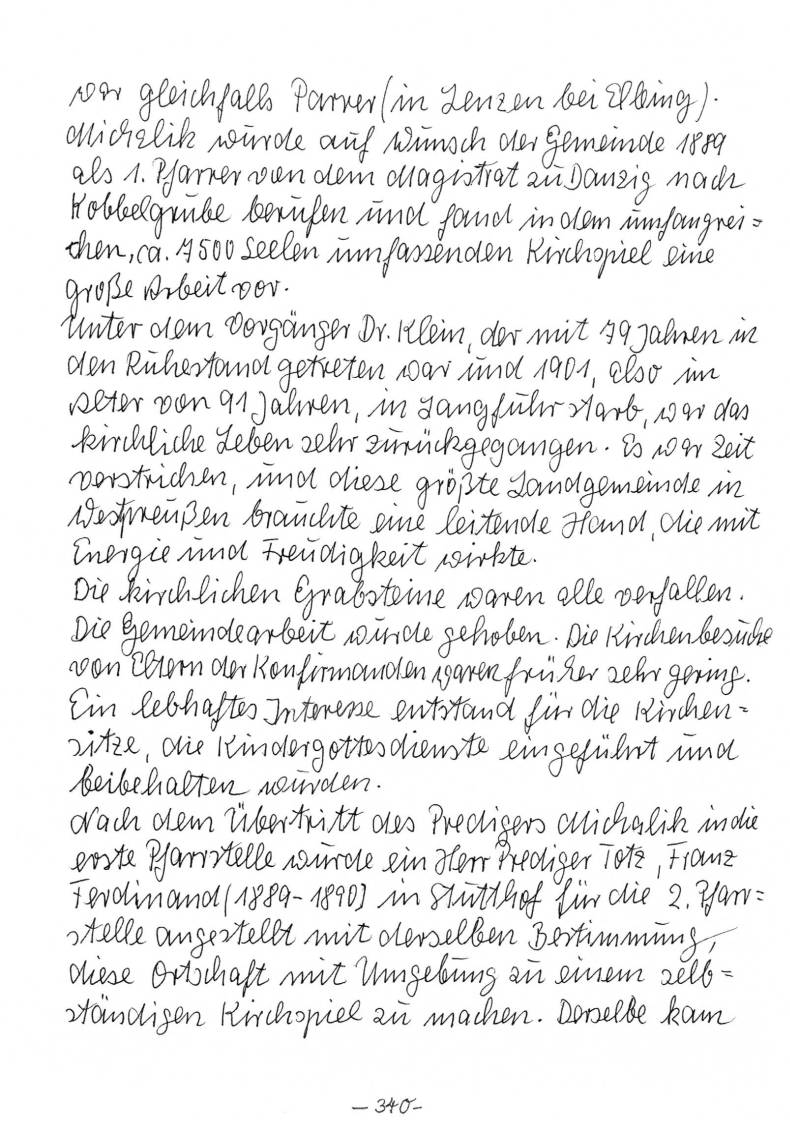 war gleichfalls Parrer (in Lenzen bei Elbing).
Michalik wurde auf Wunsch der Gemeinde 1889
als 1. Pfarrer von dem Magistrat zu Danzig nach
Kobbelgrube berufen und fand in dem umfangrei=
chen, ca. 7500 Seelen umfassenden Kirchspiel eine
große Arbeit vor.
Unter dem Vorgänger Dr. Klein, der mit 79 Jahren in
den Ruhestand getreten war und 1901, also im
Alter von 91 Jahren, in Langfuhr starb, war das
kirchliche Leben sehr zurückgegangen. Es war Zeit
verstrichen, und diese größte Landgemeinde in
Westpreußen brauchte eine leitende Hand, die mit
Energie und Freudigkeit wirkte.
Die kirchlichen Grabsteine waren alle verfallen.
Die Gemeindearbeit wurde gehoben. Die Kirchenbesuche
von Eltern der Konfirmanden waren früher sehr gering.
Ein lebhaftes Interesse entstand für die Kirchen=
sitze, die Kindergottesdienste eingeführt und
beibehalten wurden.
Nach dem Übertritt des Predigers Michalik in die
erste Pfarrstelle wurde ein Herr Prediger Totz, Franz
Ferdinand (1889-1890) in Stutthof für die 2. Pfarr=
stelle angestellt mit derselben Bestimmung,
diese Ortschaft mit Umgebung zu einem selb=
ständigen Kirchspiel zu machen. Derselbe kam
- 340 -